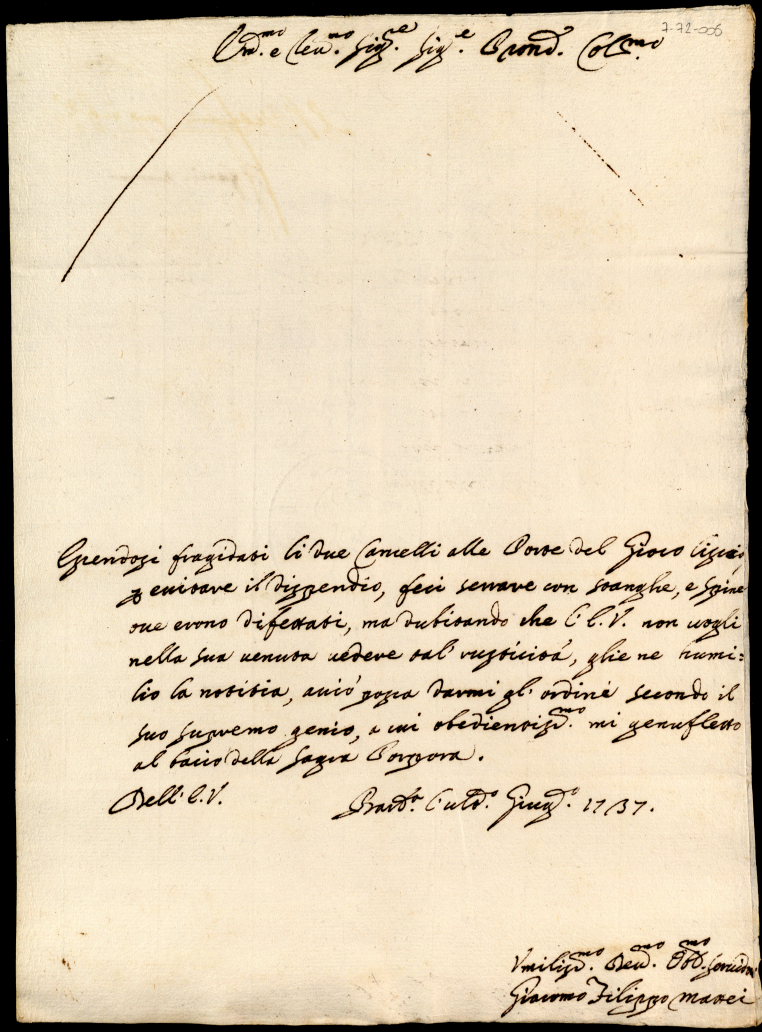 7-72-006
Em.mo e Reu.mo Sig.re Sig.e Pron. Col.mo
Essendosi fragidati li due Cancelli alle Porte del Gioco liscio,
p euitare il dispendio, feci serrare con stanghe, e spine
oue erono difettati, ma dubitando che l'E.V. non uogli
nella sua uenuta uedere tal' rusticità, glie ne humi=
lio la notitia, acciò possa darmi gl' ordine secondo il
suo supremo genio, a cui obedientiss.mo mi genufletto
al bacio della Sagra Porpora.
Dell' E.V. Giug.o 1737.
Vmiliss.mo Deu.mo Obb. Seruidor
Giacomo Filippo Mattei